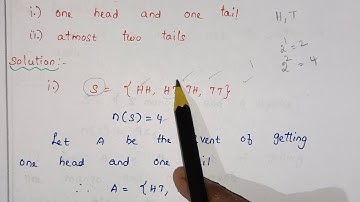 i.) one head and one tail H, T
ii) atmost two tails 2¹ = 2
Solution:- 2² = 4
i.) S = { HH, HT, TH, TT}
n(S) = 4
Let A be the event of getting
one head and one tail
∴ A = {HT,